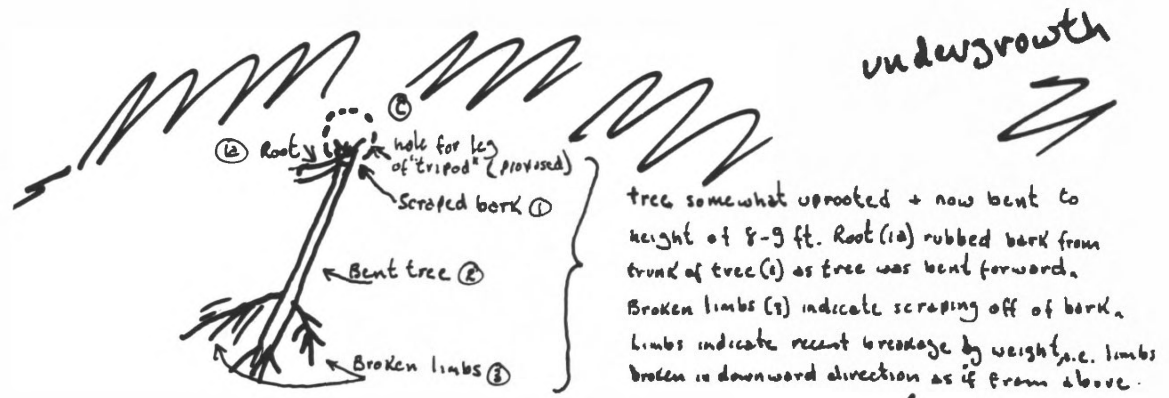 undergrowth
C
1a Root
hole for leg
of "tripod" (proposed)
Scraped bark 1
Bent tree 2
Broken limbs 3
tree somewhat uprooted + now bent to
height of 8-9 ft. Root (1a) rubbed bark from
trunk of tree (1) as tree was bent forward.
Broken limbs (3) indicate scraping off of bark.
Limbs indicate recent breakage by weight, i.e. limbs
broken in downward direction as if from above.